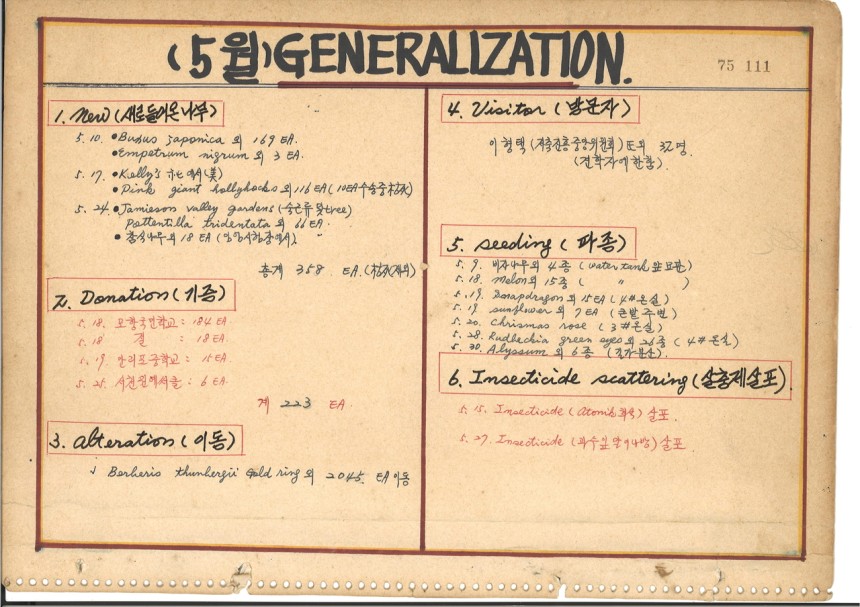 (5월) GENERALIZATION.
75 111
1. New (새로들어온나무)
5. 10. • Buxus japonica 외 169 EA.
• Empetrum nigrum 외 3 EA.
5. 17. • Kelly's 에서 (美)
• Pink giant hollyhocks 외 116 EA (10EA 수송중 枯死)
5. 24. • Jamieson valley gardens
Pottentilla tridentata 외 66 EA.
• 나무외 18 EA
총계 358 EA. (枯死제외)
2. Donation (기증)
5. 18. 모항국민학교 : 184 EA
5. 18 : 18 EA
5. 19. 만리포중학교 : 15 EA
5. 25. : 6 EA.
계 223 EA
3. alteration (이동)
Berberis thunbergii Gold ring 외 2045. EA 이동
4. Visitor (방문자)
이형택 (저축진흥중앙위원회) 또외 32명.
(견학자에한함).
5. seeding (파종)
5. 9. 비자나무외 4종 (water tank 앞묘판)
5. 18. melon외 15종 ( 〃 )
5. 19. Snapdragon 외 15 EA (4#온실)
5. 19 sunflower 외 7 EA (큰밭주변)
5. 20. Chrismas rose (3#온실)
5. 28. Rudbechia green eyes외 26종 (4#온실)
5. 30. Alyssum 외 6종
6. Insecticide scattering (살충제살포).
5. 15. Insecticide 살포.
5. 27. Insecticide 살포